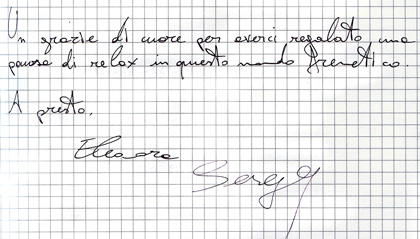 Un grazie di cuore per averci regalato una
pausa di relax in questo mondo frenetico.
A presto.
Eleonora
Sergy